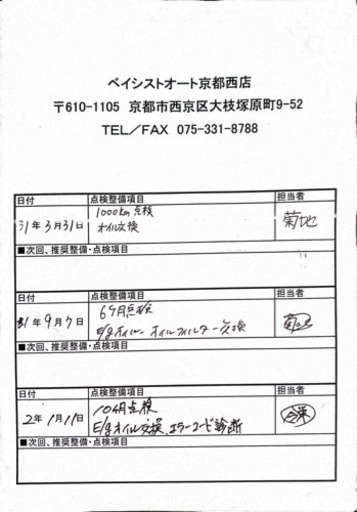 ベイシストオート京都西店
〒610-1105 京都市西京区大枝塚原町9-52
TEL/FAX 075-331-8788
日付 点検整備項目 担当者
31年3月31日 1000km点検 菊地
オイル交換
■次回、推奨整備・点検項目
日付 点検整備項目 担当者
31年9月7日 6ヶ月点検
E/gオイル・オイルフィルター交換
■次回、推奨整備・点検項目
日付 点検整備項目 担当者
2年1月11日 10ヶ月点検
E/gオイル交換、エラーコード診断
■次回、推奨整備・点検項目